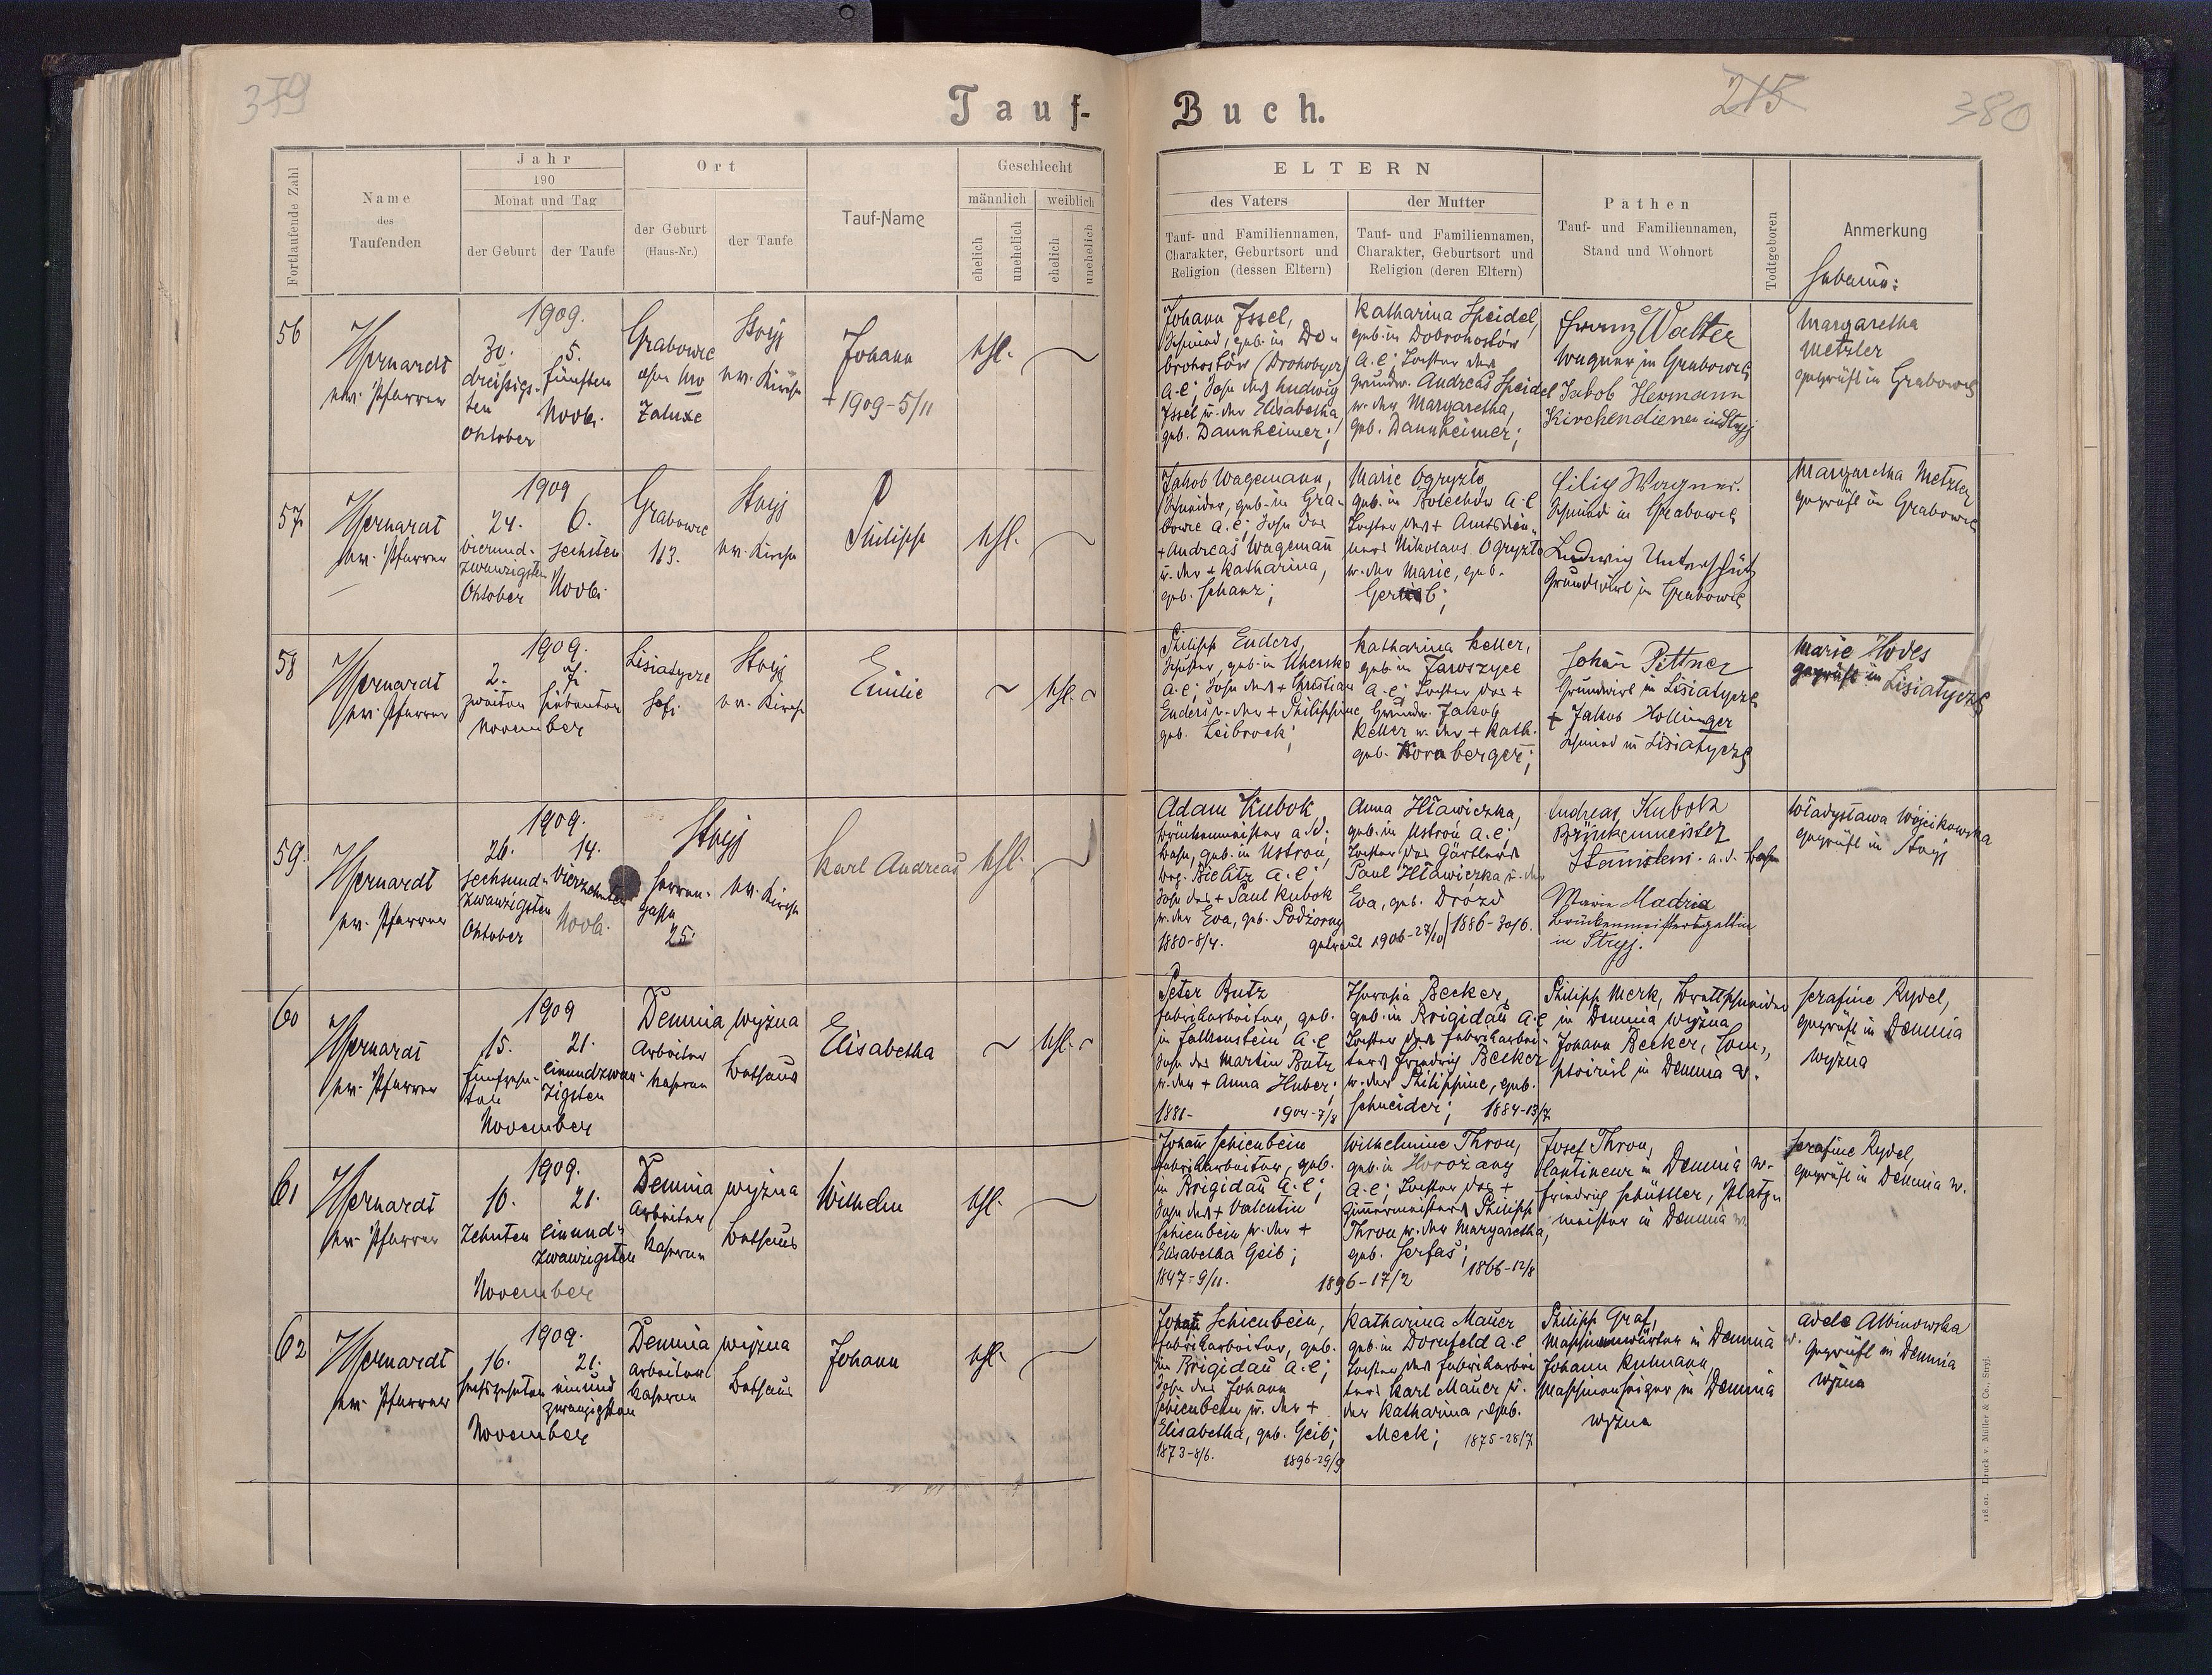 379
Tauf-
Buch.
215
380
Fortlaufende Zahl
Name
des
Taufenden
Jahr
190
Monat und Tag
der Geburt
der Taufe
Ort
der Geburt
(Haus-Nr.)
der Taufe
Tauf-Name
Geschlecht
männlich
weiblich
ehelich
unehelich
ehelich
unehelich
ELTERN
des Vaters
der Mutter
Tauf- und Familiennamen,
Charakter, Geburtsort und
Religion (dessen Eltern)
Tauf- und Familiennamen,
Charakter, Geburtsort und
Religion (deren Eltern)
Pathen
Tauf- und Familiennamen,
Stand und Wohnort
Todtgeboren
Anmerkung
Hebamme:
56
ev. Pfarrer
1909.
30.
dreißigs-
ten
Oktober
5.
fünften
Novb.
Grabowc
Zaluże
Stryj
ev. Kirche
Johann
+ 1909-5/11
ehl.
Johann Issel,
Schmied, geb. in Do-
brohostów (Drohobycz)
A.C; Sohn des Ludwig
Issel u. der Elisabetha,
geb. Dannheimer;
Katharina Speidel,
geb. in Dobrohostów
A.C; Tochter des
Grundw. Andreas Speidel
u. der Margaretha,
geb. Dannheimer;
Franz Walter
Wagner in Grabowc
Jakob Hermann
Kirchendiener in Stryj
Margaretha
Metzler
geprüft in Grabowc
57
ev. Pfarrer
1909
24.
vierund-
zwanzigsten
Oktober
6.
sechsten
Novb.
Grabowc
113.
Stryj
ev. Kirche
Philipp
ehl.
Jakob Wagemann,
Schneider, geb. in Gra-
bowc A.C; Sohn des
+ Andreas Wagemañ
u. der + Katharina,
geb. Schanz;
Marie Ogryzło
geb. in Bolechów A.C
Tochter des + Amtsdie-
ners Nikolaus Ogryzło
u. der Marie, geb.
Filip Wagner.
Schmied in Grabowc
Ludwig Unterschütz
Grundwirt in Grabowc
Margaretha Metzler
geprüft in Grabowc
58
ev. Pfarrer
1909.
2.
zweiten
7.
siebenten
November
Lisiatycze
Stryj
ev. Kirche
Emilie
ehl.
Philipp Enders,
Schuster, geb. in Uhersko
A.C; Sohn des + Christian
Enders u. der + Philippine
geb. Leibrock;
Katharina Keller,
geb. in Jaroszyce
A.C; Tochter des +
Grundw. Jakob
Keller u. der + Kath.
geb. Kornberger;
Johañ Pittner
Grundwirt in Lisiatycze
+ Jakob Hollinger
Schmied in Lisiatycze
Marie Hodes
geprüft in Lisiatycze
59.
ev. Pfarrer
1909.
26.
sechsund-
zwanzigsten
Oktober
14.
vierzehnten
Novb.
Stryj
Herren-
gasse
25.
ev. Kirche
Karl Andreas
ehl.
Adam Kubok
Brückenmeister a.d.
Bahn, geb. in Ustron,
Bez. Bielitz A.C;
Sohn des + Paul Kubok
u. der Eva, geb. Podżorny
1880-8/4.
Anna Hławiczka,
geb. in Ustroń A.C;
Tochter des Gärtners
Paul Hławiczka u. der
Eva, geb. Drozd
getraut 1906-27/10
1886-30/6.
Andreas Kubok
Brückenmeister
Stanislau a.d. Bahn
Marie Madria
Brückenmeistersgattin
in Stryj.
Władysława Wójcikowska
geprüft in Stryj
60
ev. Pfarrer
1909
15.
fünfzehn-
ten
21.
einundzwan-
zigsten
November
Demnia wyżna
Arbeiter
kaserne
Bethaus
Elisabetha
ehl.
Peter Butz
Fabrikarbeiter, geb.
in Falkenstein A.C
Sohn des Martin Butz
u. der + Anna Huber;
1881-
1904-7/8
Becker,
geb. in Brigidau A.C
Tochter des Fabrikarbei-
ters Friedrich Becker
u. der Philippine, geb.
Schneider;
1884-13/7.
Philipp Merk, Brettschneider
in Demnia wyżna
Johann Becker, Com-
ptoirist in Demnia w.
Serafine Rydel,
geprüft in Demnia
wyżna
61
ev. Pfarrer
1909.
10.
Zehnten
21.
einund-
zwanzigsten
November
Demnia wyżna
Arbeiter
kaserne
Bethaus
Wilhelm
ehl.
Johañ Schienbein
Fabrikarbeiter, geb.
in Brigidau A.C;
Sohn des + Valentin
Schienbein, u. der +
Elisabetha Geib;
1847-9/11.
1896-17/2
Wilhelmine Thron,
geb. in Horożany
A.C; Tochter des +
Zimmermeisters Philipp
Thron u. der Margaretha,
geb. Serfas;
1866-12/8
Josef Thron,
Kantineur in Demnia w.
Friedrich Schüttler, Platz-
meister in Demnia w.
Serafine Rydel,
geprüft in Demnia w.
62
ev. Pfarrer
1909.
16.
sechszehnten
21.
einund
zwanzigsten
November
Demnia wyżna
Arbeiter
kaserne
Bethaus
Johann
ehl.
Johann Schienbein,
Fabrikarbeiter, geb.
in Brigidau A.C;
Sohn des Johann
Schienbein u. der +
Elisabetha, geb. Geib;
1873-8/6.
1896-29/9
Katharina Mauer
geb. in Dornfeld A.C
Tochter des Fabrikarbei
ters Karl Mauer u.
der Katharina, geb.
Meck;
1875-28/7.
Philipp Graf,
Maschinenwärter in Demnia w.
Johann Kuhmann,
Maschinenheizer in Demnia
wyżna
Adele Albinowska
geprüft in Demnia
wyżna
118.01. Druck v. Müller & Co., Stryj.